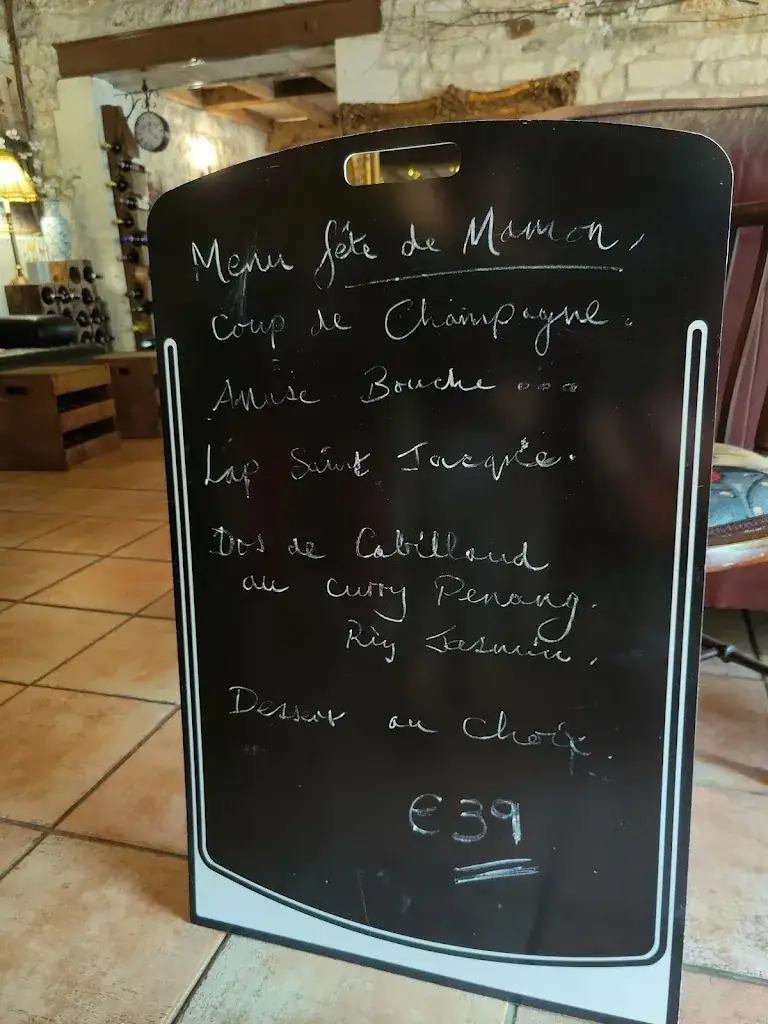 Menu fête de Maman,
Coup de Champagne.
Amuse Bouche ...
Lap Saint Jacques.
Dos de Cabillaud
au curry Penang.
Riz Jasmin.
Dessert au Choix.
€39